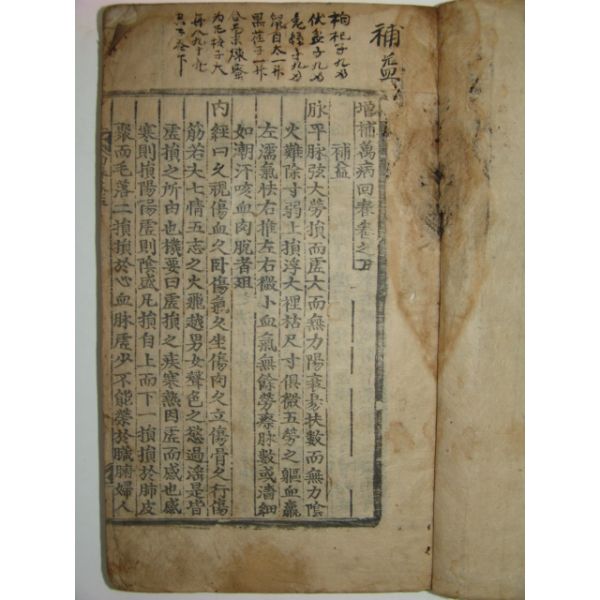 補益
枸杞子九
子九
子九
鼠目太一升
黑荏子一升
末煉蜜
为丸梧子大
八九十丸
下
增補萬病回春卷之
補益
脉平脉弦大勞損而虛大而無力陽衰易扶數而無力陰
火難除寸弱上損浮大裡枯尺寸俱微五勞之軀血羸
左濡氣怯右推左右微小血氣無餘勞瘵脉數或濇細
如潮汗咳血肉脫者殂
內經曰久視傷血久卧傷氣久坐傷肉久立傷骨久行傷
筋若夫七情五志之火飛越男女聲色之慾過淫是皆
虛損之所由也機要曰虛損之疾寒熱因虛而感也感
寒則損陽陽虛則陰盛凡損自上而下一損損於肺皮
聚而毛落二損損於心血脉虛少不能榮於臟腑婦人